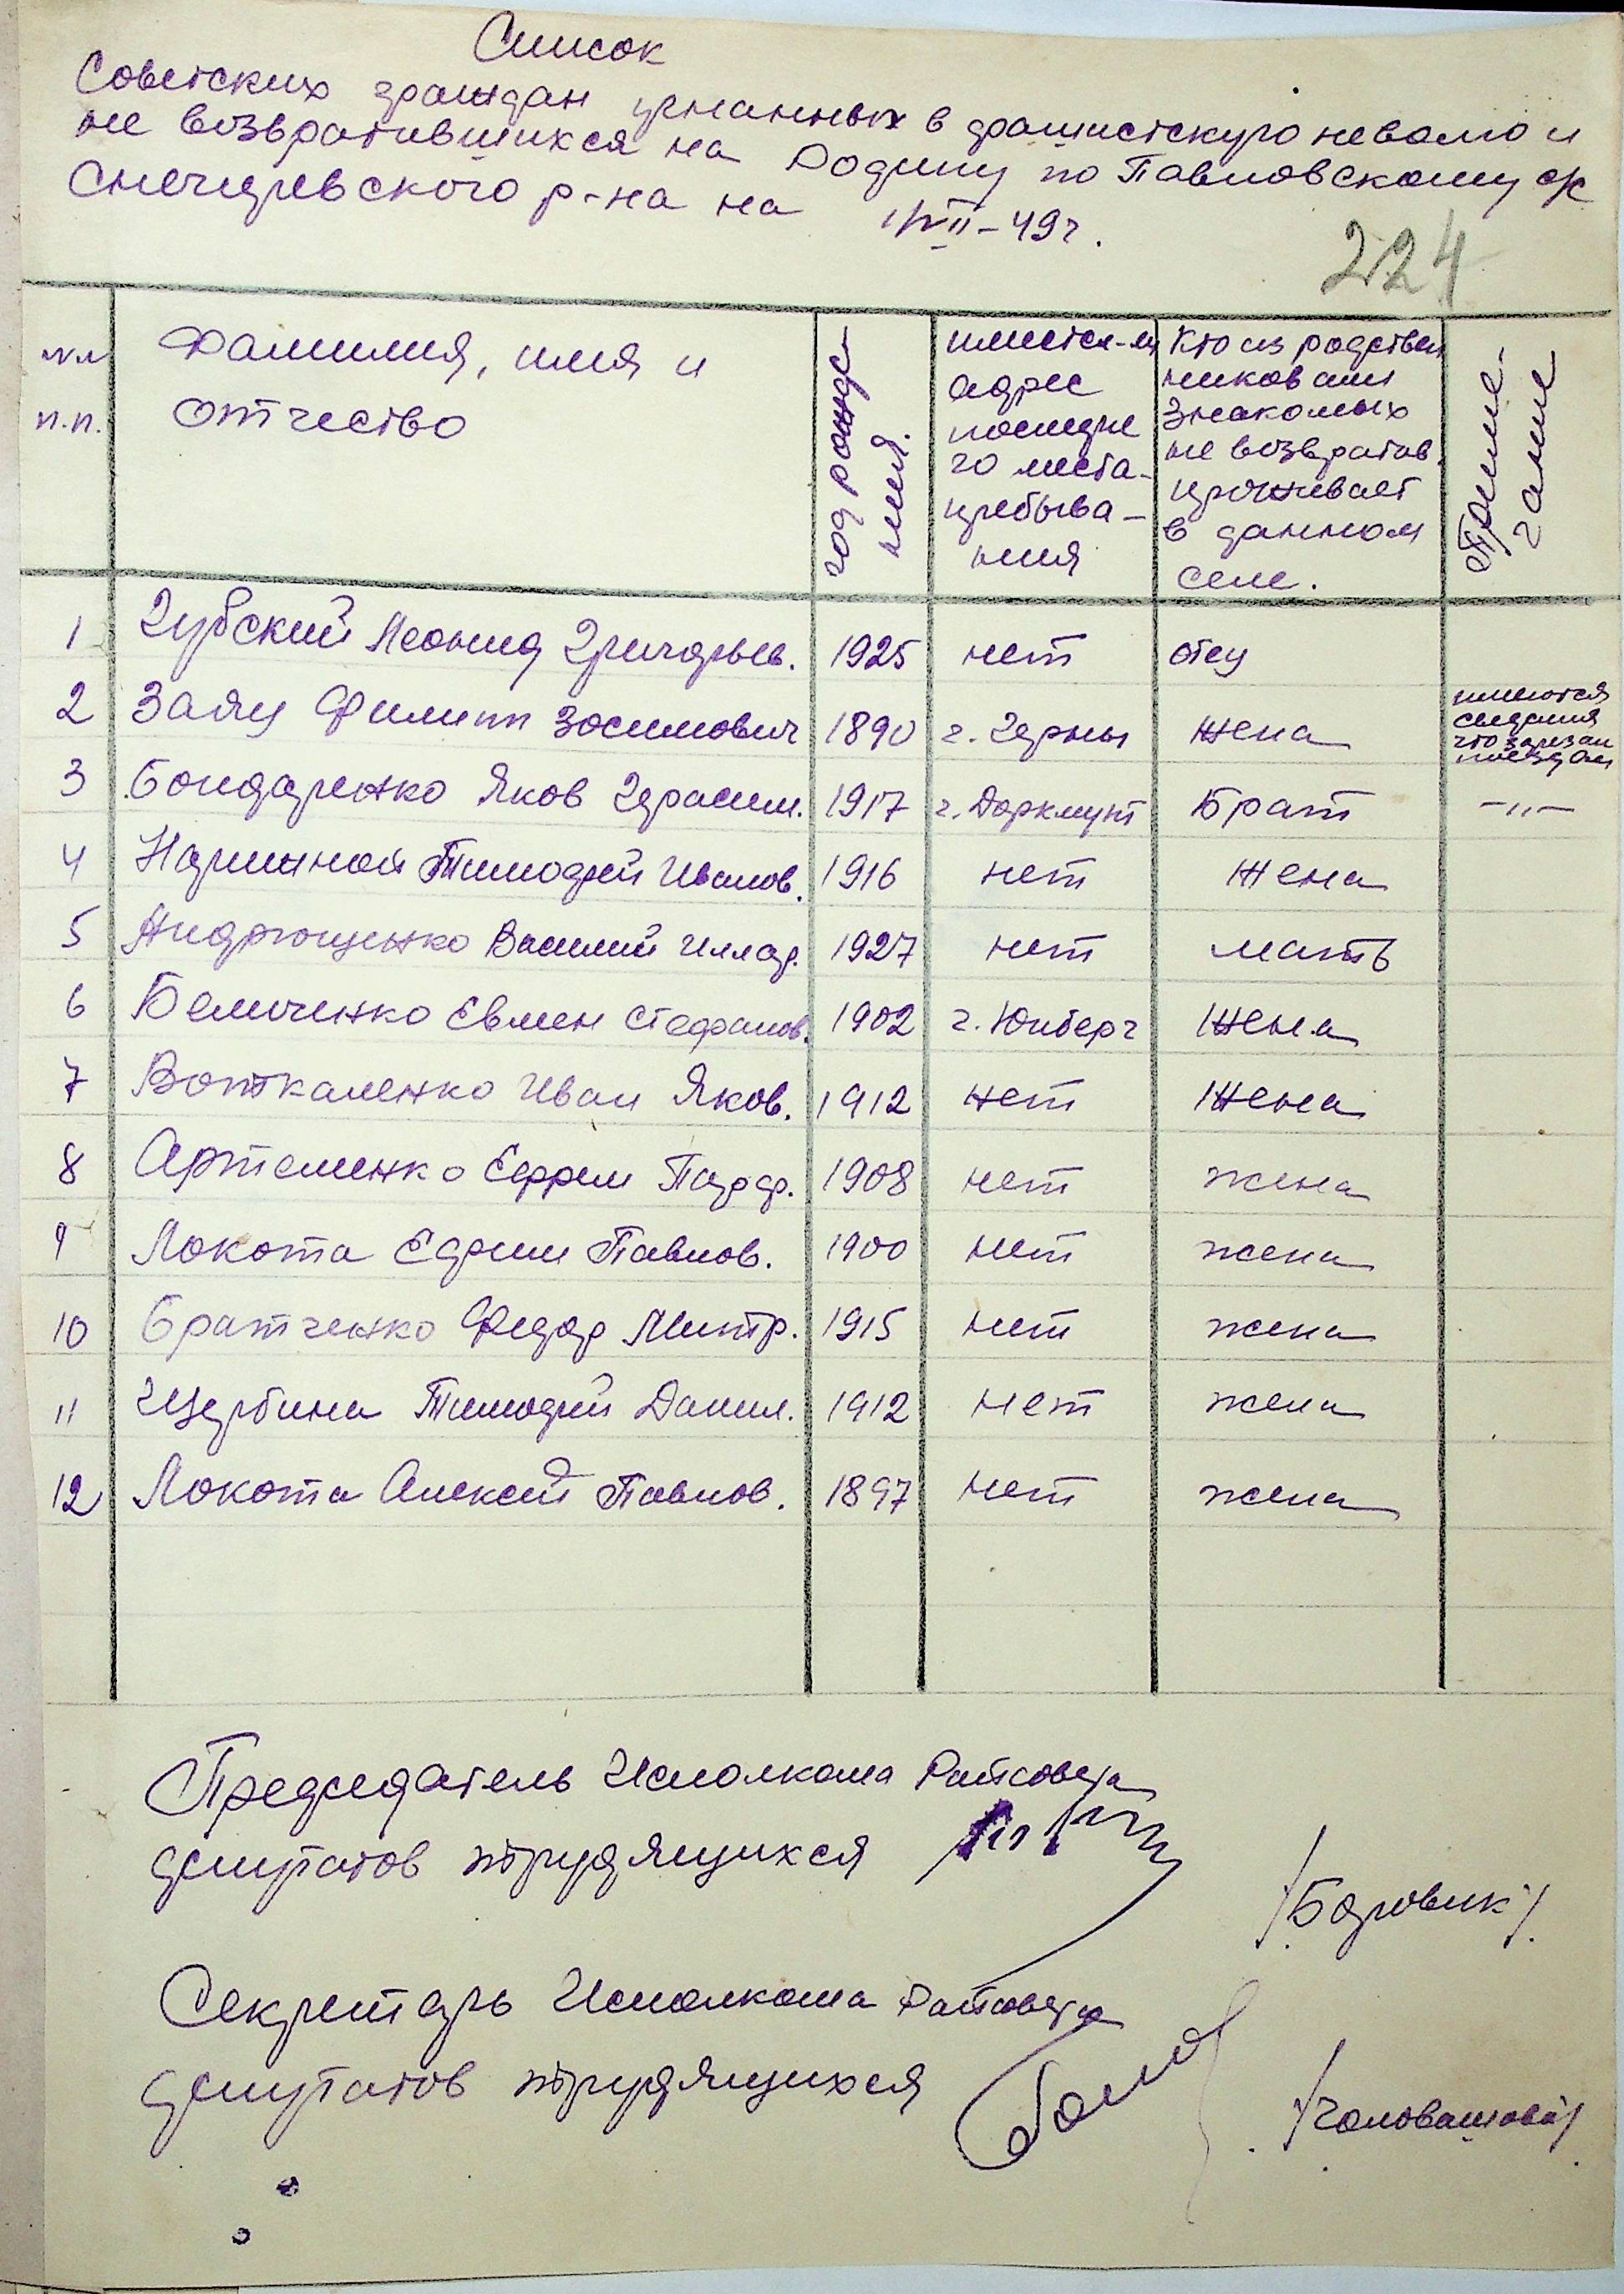 Список
Советских граждан угнанных в фашистскую неволю и
не возвратившихся на Родину по Павловскому с/с
Снегиревского р-на на 1/VII-49г.
224
№№ п.п. Фамилия, имя и отчество год рожде-ния. имеется-ли адрес последне го места-пребыва-ния Кто из родствен ников или знакомых не возвратив. проживает в данном селе. Приме-чание
1 Зубский Леонид Григорьев. 1925 нет отец
2 Заяц Филипп Зосимович 1890 г. Герны жена имеются сведения что зарезан поездом
3 Бондаренко Яков Герасим. 1917 г. Даркмунт Брат -"-
4 Тимофей Иванов. 1916 нет жена
5 Андрющенко Василий Иллар. 1927 нет мать
6 Беличенко Евмен Стефанов. 1902 г. Юнберг Жена
7 Воткаленко Иван Яков. 1912 нет Жена
8 Артеменко Ефрем 1908 нет жена
9 Локота Ефим Павлов. 1900 нет жена
10 Братченко Федор Митр. 1915 нет жена
11 Щербина Тимофей Данил. 1912 нет жена
12 Локота Алексей Павлов. 1897 нет жена
Председатель Исполкома Райсовета
депутатов трудящихся
/Боровик/
Секретарь Исполкома Райсовета
депутатов трудящихся